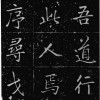 吾道行
此人焉
序尋戈